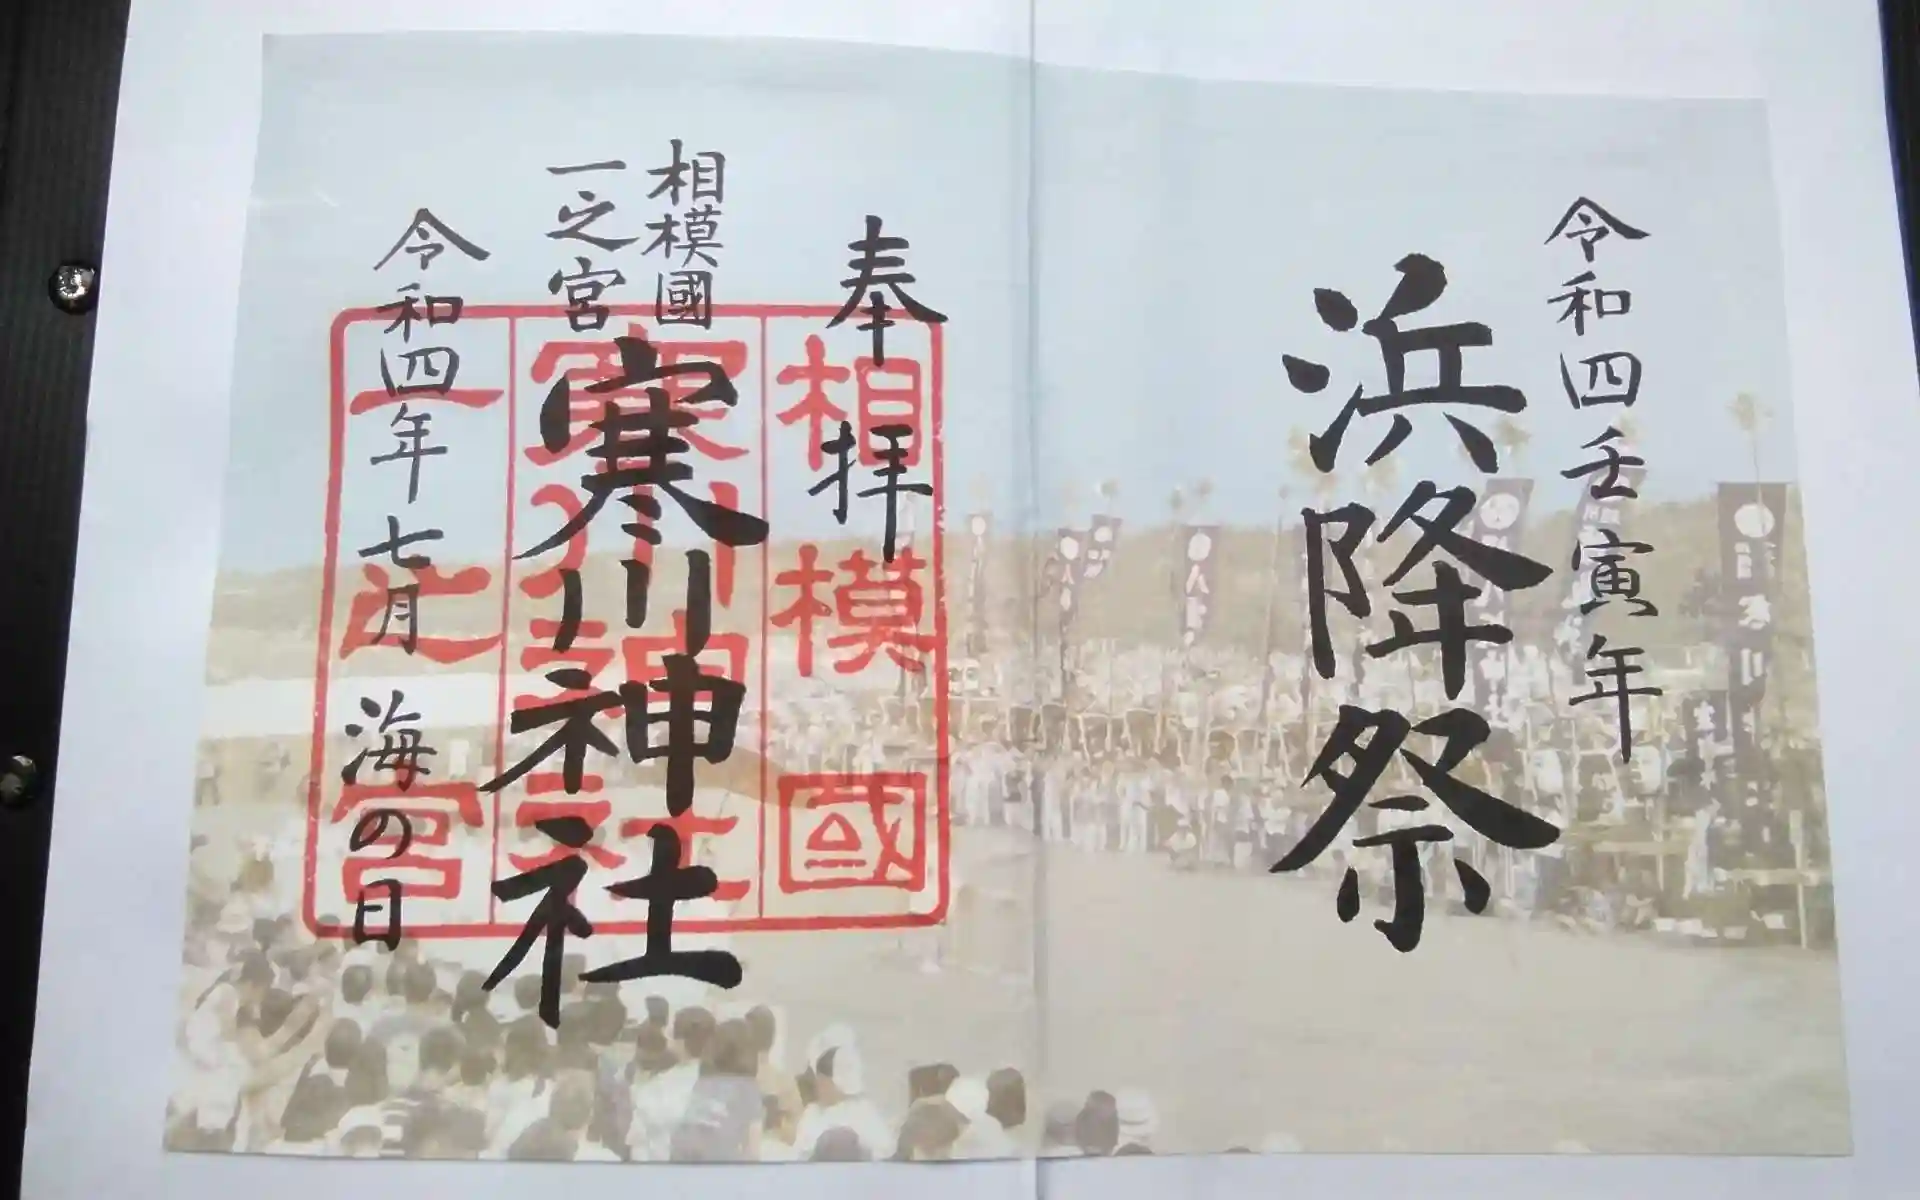 令和四壬寅年
浜降祭
奉拝
相模國
一之宮
寒川神社
令和四年七月 海の日
相模國
寒川神社
一之宮